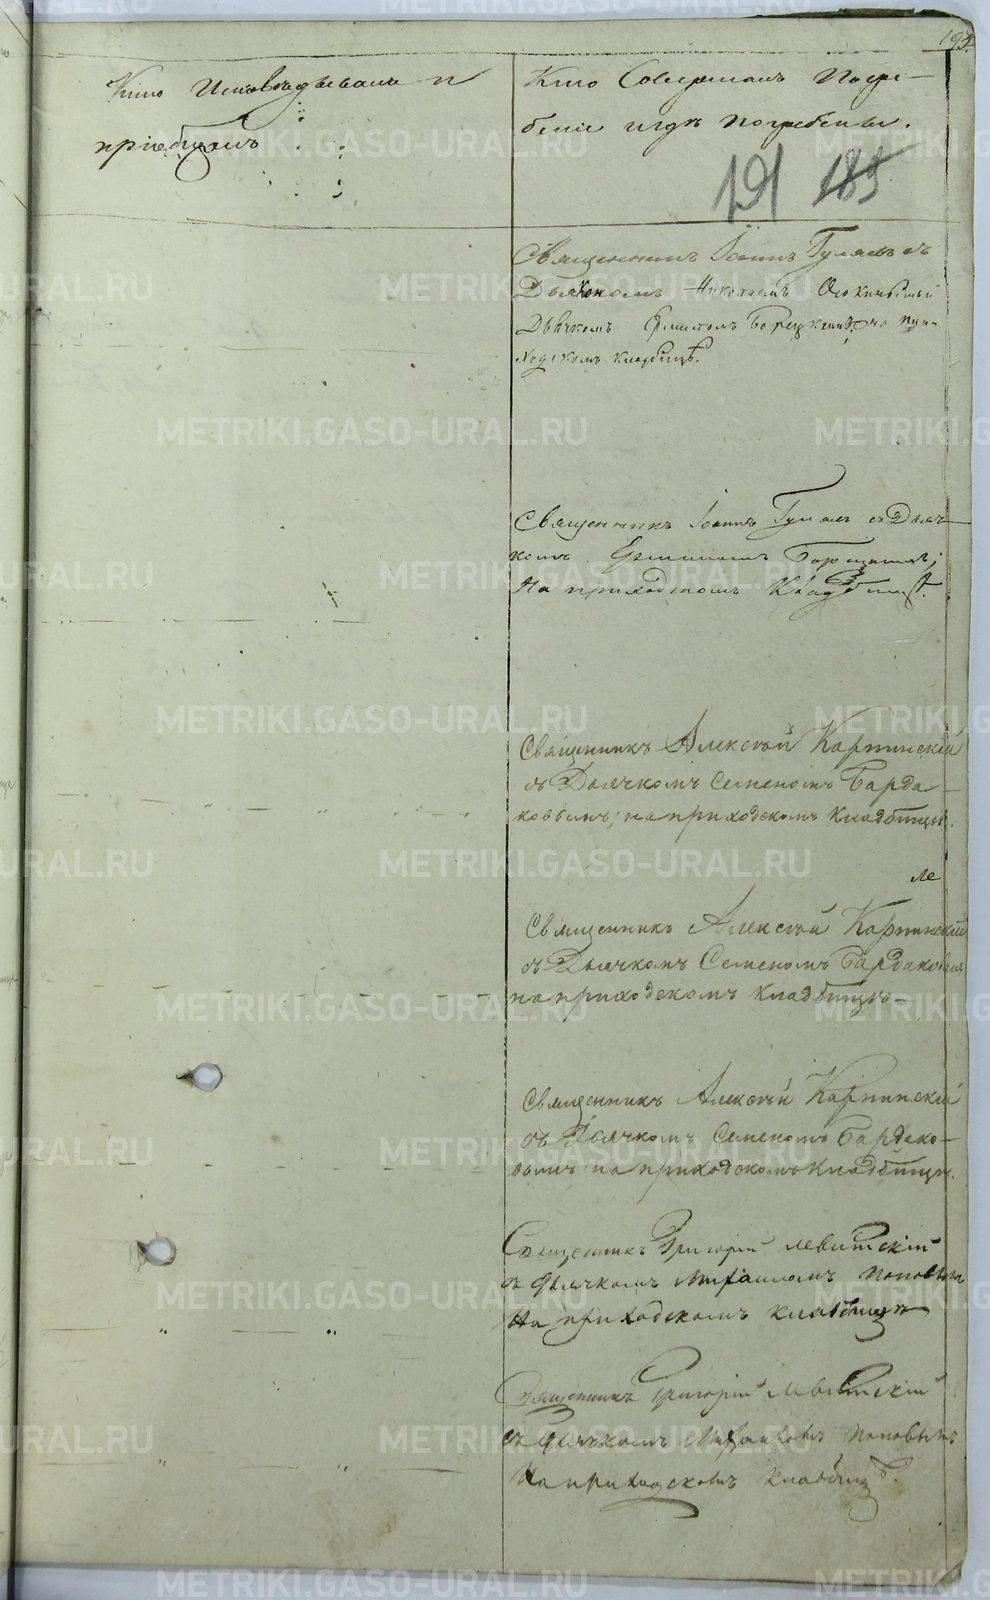 193.
Кто Исповѣдывалъ и
пріобщалъ
Кто Совершалъ Погре-
беніе и гдѣ погребены.
191 189
Священникъ Іоаннъ съ
Дьякономъ Николаемъ
Дьячкомъ на при-
ходскомъ кладбищѣ.
Священникъ Іоаннъ съ Дьяч-
комъ
На приходскомъ Кладбищѣ.
Священникъ Алексѣй Карпинскій
съ Дьячкомъ Семеномъ Барда-
ковымъ; на приходскомъ кладбищѣ.
ле
Священникъ Алексѣй Карпинскій
съ Дьячкомъ Семеномъ Бардаковымъ
на приходскомъ кладбищѣ.—
Священникъ Алексѣй Карпинскій
съ Дьячкомъ Семеномъ Бардако-
вымъ на приходскомъ кладбищѣ.
Священникъ Григорій Левитскій
съ дьячкомъ Михаиломъ Поповымъ
На приходскомъ кладбищѣ
Священникъ Григорій Левитскій
съ дьячкомъ Михаиломъ Поповымъ
На приходскомъ кладбищѣ.
METRIKI.GASO-URAL.RU